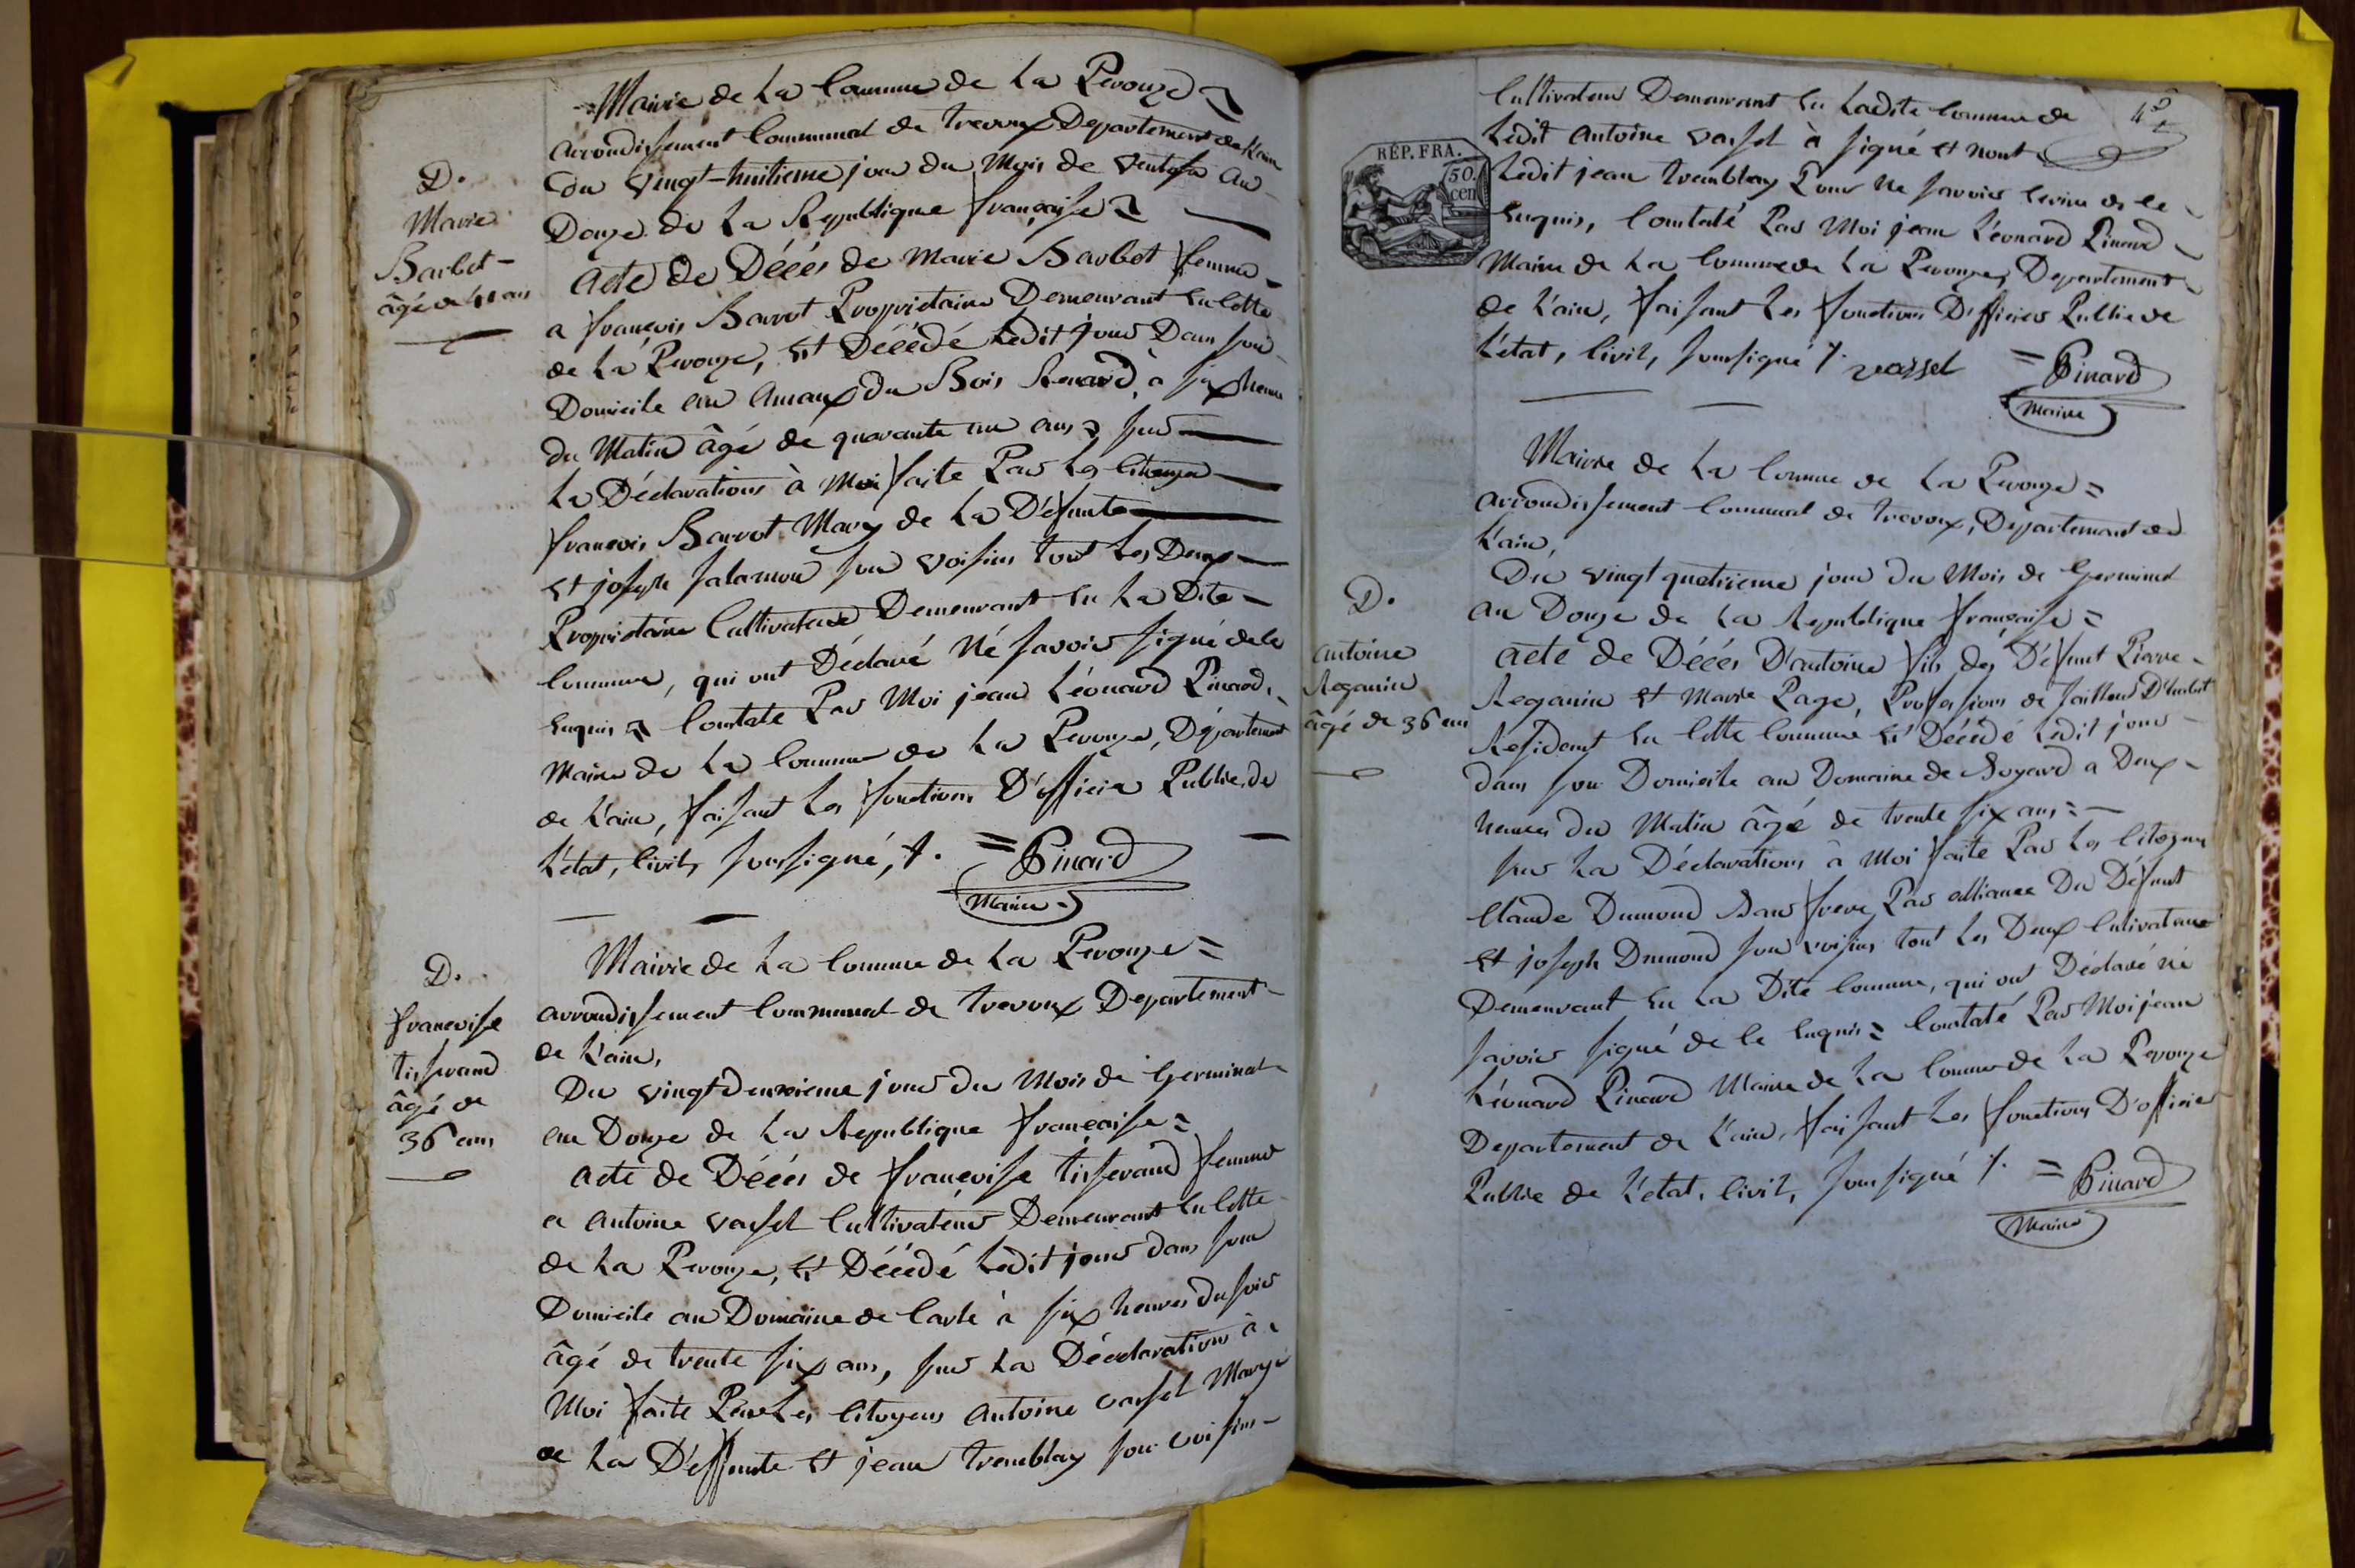 Mairie de La Commune de La Perouze
arrondissement Communal de trevoux Departement de L'ain
Du vingt-huitieme jour du Mois de Ventose an
Douze de La Republique française
D.
Marie
Barbet
âgé de 41 ans
acte de Décés de Marie Barbet femme
a françois Barrot Propriétaire Demeurant En Cette
de La Perouze, Et Décédé Ledit jour Dans son
Domicile au Amaux du Bois Renard, à six heure
du Matin âgé de quarante un ans sur
La Déclarations à Moi faite Par Les Citoyen
françois Barrot Mary de La Défunte
Et joseph Salamon son voisins tout Les Deux
Propriétaire Cultivateurs Demeurant En La Dite
Commune, qui ont Déclaré Né savoir signé de le
Enquis Constaté Par Moi jean Léonard Pinard,
Maire de La Commune de La Perouze, Département
de L'ain, faisant Les fonctions D'officier Public de
L'état, Civil, soussigné, /. = Pinard
Maire
Mairie de La Commune de La Perouze =
arrondissement Communal de trevoux Departement
de L'ain,
D.
francoise
tisserand
âgé de
36 ans
Du vingt deuxieme jour du Mois de Germinal
an Douze de La Republique française =
acte de Décés de françoise tisserand femme
a antoine vassel Cultivateur Demeurant En Cette
de La Perouze, Et Décédé Ledit jour dans son
Domicile au Domaine de Carlé à six heures du soir
âgé de trente six ans, sur La Décclaration à
Moi faite Par Les Citoyens antoine vassel Marye
de La Deffunte Et jean tremblay son voisins
Cultivateur Demeurant En Ladite Commune de
Ledit antoine vassel à signé Et nont
Ledit jean tremblay Pour Ne savoir Ecrire de le
Enquis, Constaté Par Moi jean Léonard Pinard
Maire de La Commune de La Perouze, Departement
de L'ain, faisant Les fonctions D'officier Public de
L'état, Civil, soussigné /. vassel = Pinard
Maire
RÉP. FRA.
50.
cen
Mairie de La Comune de La Perouze =
arrondissement Communal de trevoux, Departement de
L'ain,
Du vingt quatrieme jour du Mois de Germinal
an Douze de La Republique française =
D.
antoine
Reganin
âgé de 36 ans
acte de Décés D'antoine fils des Défunt Pierre
Reganin Et Marie Page, Professions de Tailleur D'habit
Residant En Cette Commune Et Décédé Ledit jour
dans son Domicile au Domaine de Boyard a Deux
heures du Matin âgé de trente six ans =
sur La Déclarations à Moi faite Par Les Citoyens
Claude Dumond Beau frere Par alliance Du Défunt
Et joseph Dumond son voisins tout Les Deux Cultivateur
Demeurant En La Dite Commune, qui ont Déclaré né
savoir signé de le Enquis = Constaté Par Moi jean
Léonard Pinard Maire de La Comune de La Perouze
Departement de L'ain, faisant Les fonctions D'officier
Public de L'état, Civil, soussigné /. = Pinard
Maire